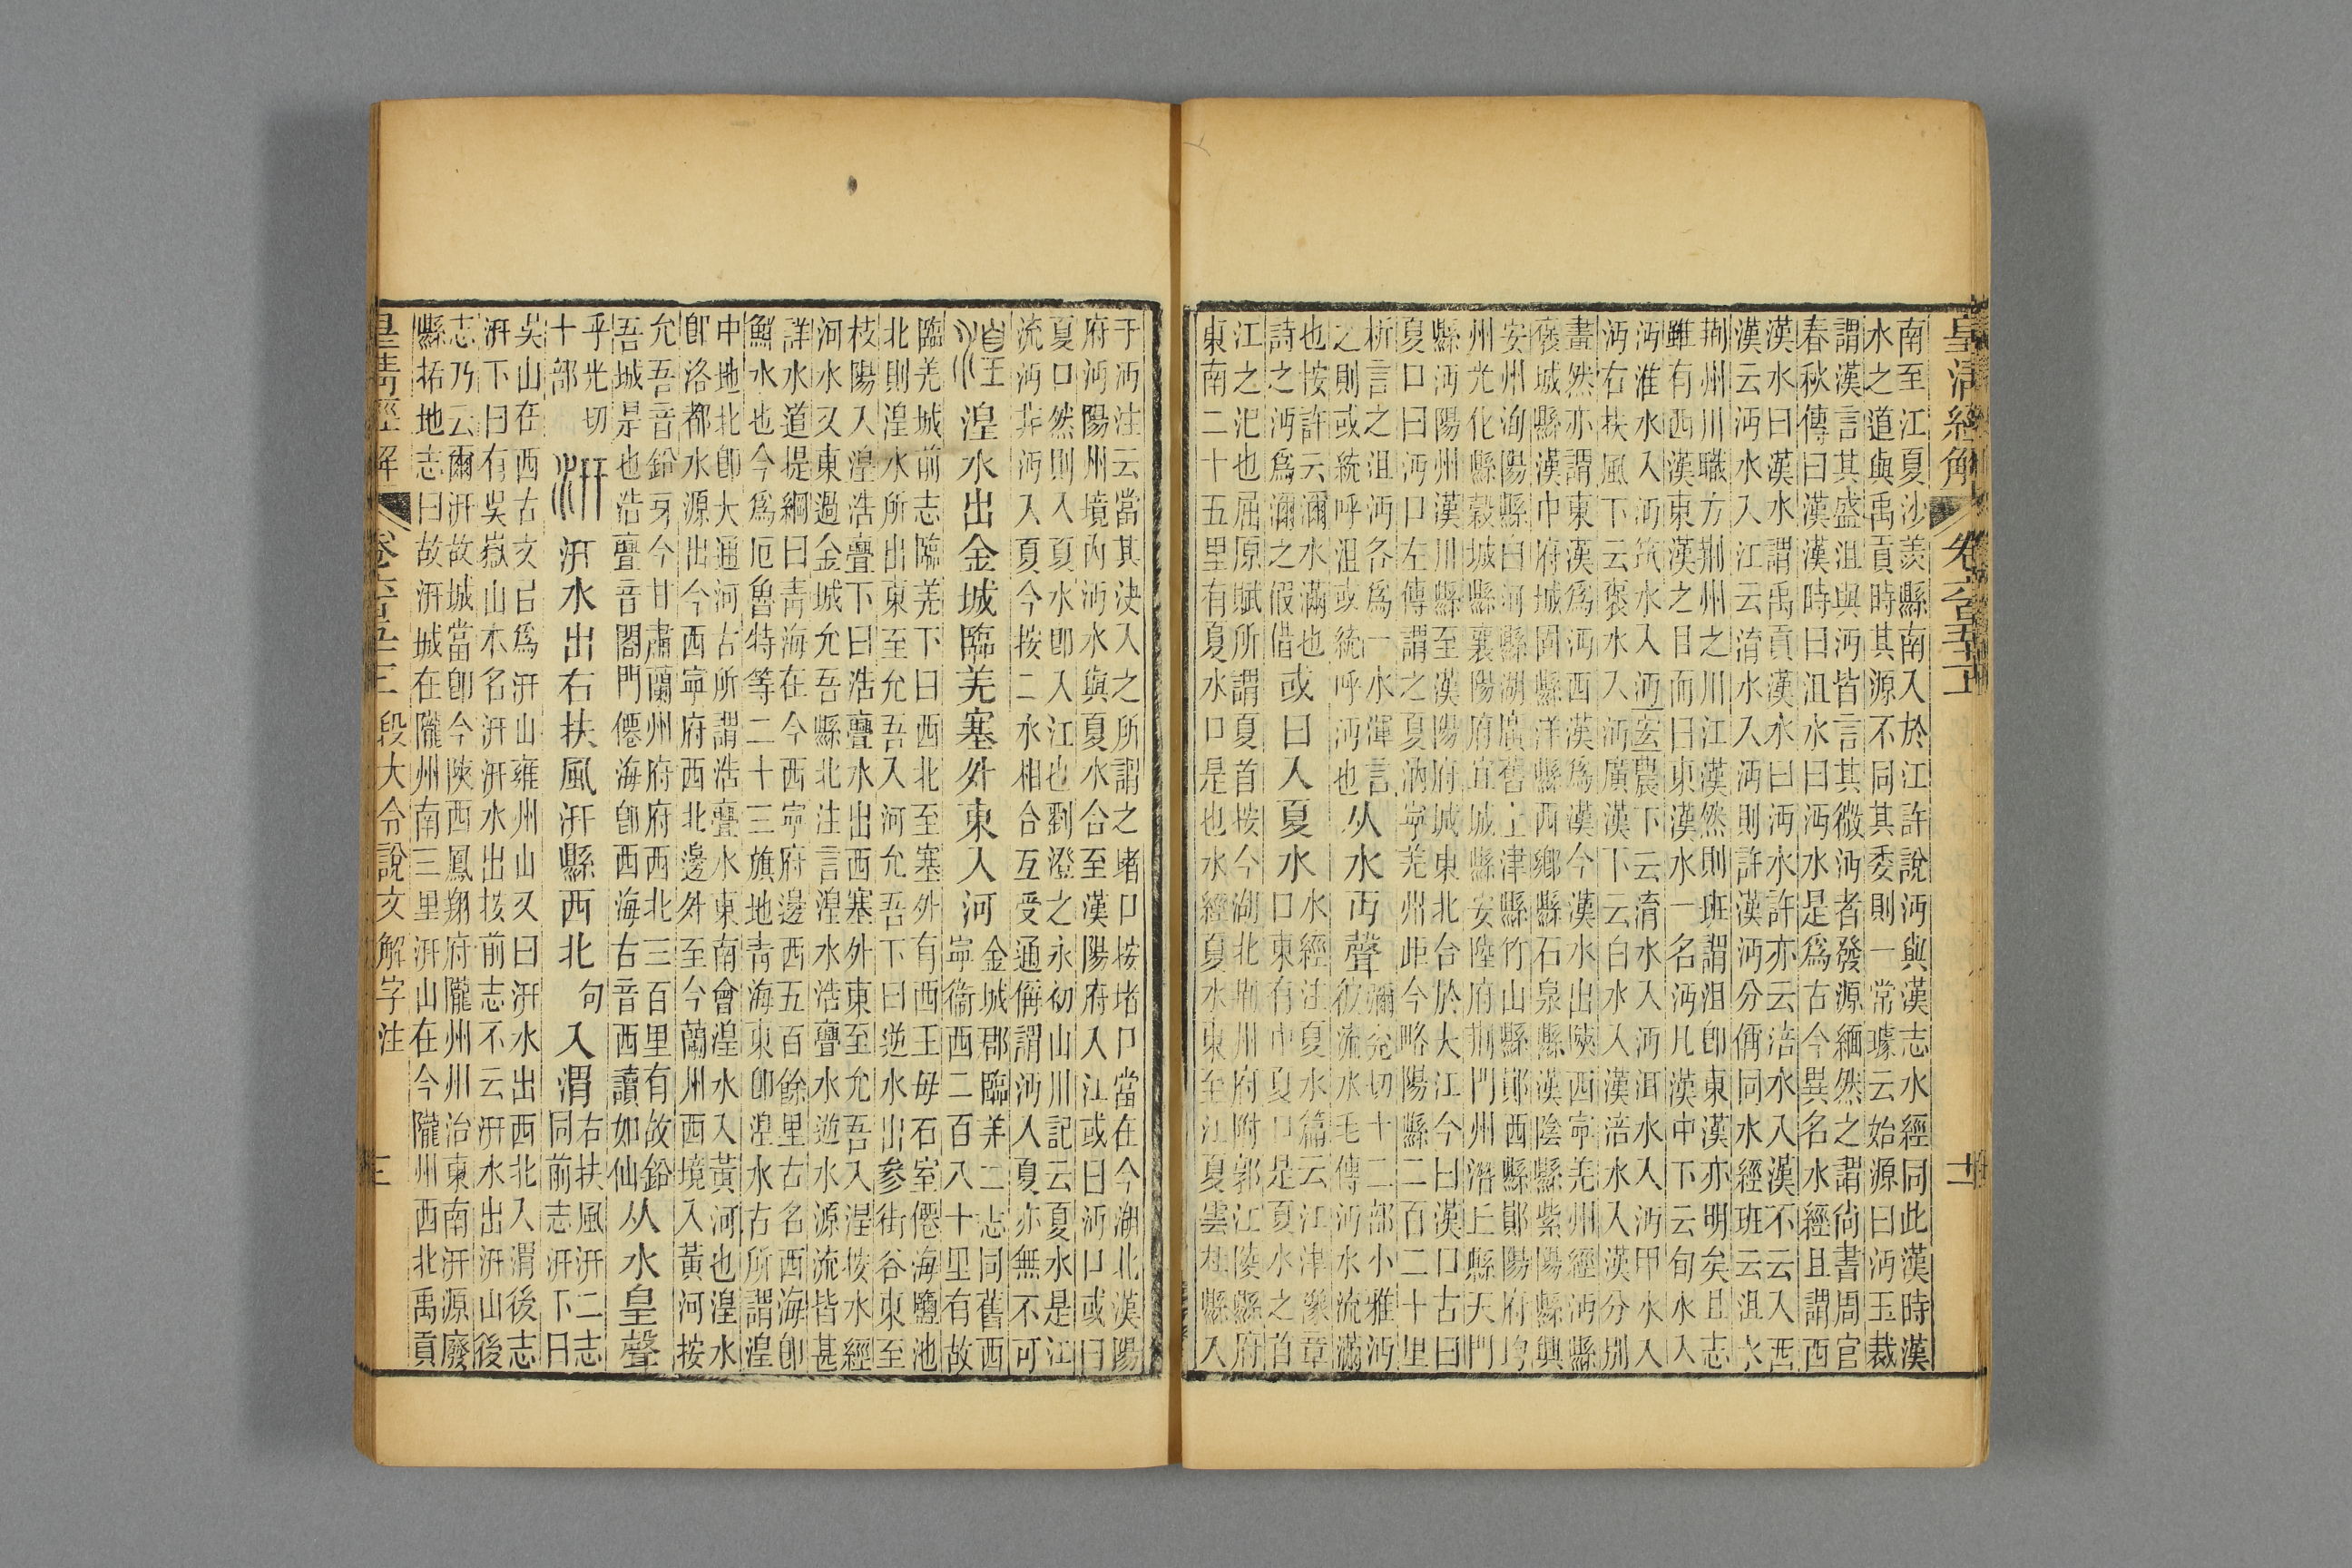 皇清經解
南至江夏沙羨縣南入於江許說沔與漢志水經同此漢時漢
水之道與禹貢時其源不同其委則一常璩云始源曰沔玉裁
謂漢言其盛沮與沔皆言其微沔者發源緬然之謂尙書周官
春秋傳曰漢漢時曰沮水曰沔水是爲古今異名水經且謂西
漢水曰漢水謂禹貢漢水曰沔水許亦云涪水入漢不云入西
漢云沔水入江云淯水入沔則許漢沔分偁同水經班云沮水
荆州川職方荆州之川江漢然則班謂沮卽東漢亦明矣且志
雖有西漢東漢之目而曰東漢水一名沔凡漢中下云旬水入
沔淮水入沔筑水入沔宏農下云淯水入沔洱水入沔甲水入
沔右扶風下云褒水入沔廣漢下云白水入漢涪水入漢分別
畫然亦謂東漢爲沔西漢爲漢今漢水出陝西寧羌州經沔縣
襃城縣漢中府城固縣洋縣西鄉縣石泉縣漢陰縣紫陽縣興
安州洵陽縣白河縣湖廣舊上津縣竹山縣鄖西縣鄖陽府均
州光化縣穀城縣襄陽府宜城縣安陸府荆門州潛江縣天門
縣沔陽州漢川縣至漢陽府城東北合於大江今曰漢口古曰
夏口曰沔口左傳謂之夏汭寧羌州距今略陽縣二百二十里
析言之沮沔各爲一水渾言
之則或統呼沮或統呼沔也
从水丏聲
彌兗切十二部小雅沔
彼流水毛傳沔水流滿
也按許云瀰水滿也
詩之沔爲瀰之假借
或曰入夏水
水經注夏水篇云江津豫章
口東有中夏口是夏水之首
江之汜也屈原賦所謂夏首按今湖北荆州府附郭江陵縣府
東南二十五里有夏水口是也水經夏水東至江夏雲杜縣入
于沔注云當其決入之所謂之堵口按堵口當在今湖北漢陽
府沔陽州境內沔水與夏水合至漢陽府入江或曰沔口或曰
夏口然則入夏水卽入江也劉澄之永初山川記云夏水是江
流沔非沔入夏今按二水相合互受通偁謂沔入夏亦無不可
湟 湟水出金城臨羌塞外東入河
金城郡臨羌二志同舊西
寧衞西二百八十里有故
臨羌城前志臨羌下曰西北至塞外有西王毋石室僊海鹽池
北則湟水所出東至允吾入河允吾下曰逆水出參街谷東至
枝陽入湟浩亹下曰浩亹水出西塞外東至允吾入湟按水經
河水又東過金城允吾縣北注言湟水浩亹水逆水源流皆甚
詳水道提綱曰靑海在今西寧府邊西五百餘里古名西海卽
鮮水也今爲厄魯特等二十三旗地靑海東卽湟水古所謂湟
中地北卽大通河古所謂浩亹水東南會湟水入黃河也湟水
卽洛都水源出今西寧府西北邊外至今蘭州西境入黃河按
允吾音鉛牙今甘肅蘭州府府西北三百里有故鉛
吾城是也浩亹音閤門僊海卽西海古音西讀如仙
从水皇聲
乎光切
十部
汧 汧水出右扶風汧縣西北
句
入渭
右扶風汧二志
同前志汧下曰
吳山在西古文已爲汧山雍州山又曰汧水出西北入渭後志
汧下曰有吳嶽山本名汧汧水出按前志不云汧水出汧山後
志乃云爾汧故城當卽今陝西鳳翔府隴州州治東南汧源廢
縣括地志曰故汧城在隴州南三里汧山在今隴州西北禹貢
皇清經解
段大令說文解字注